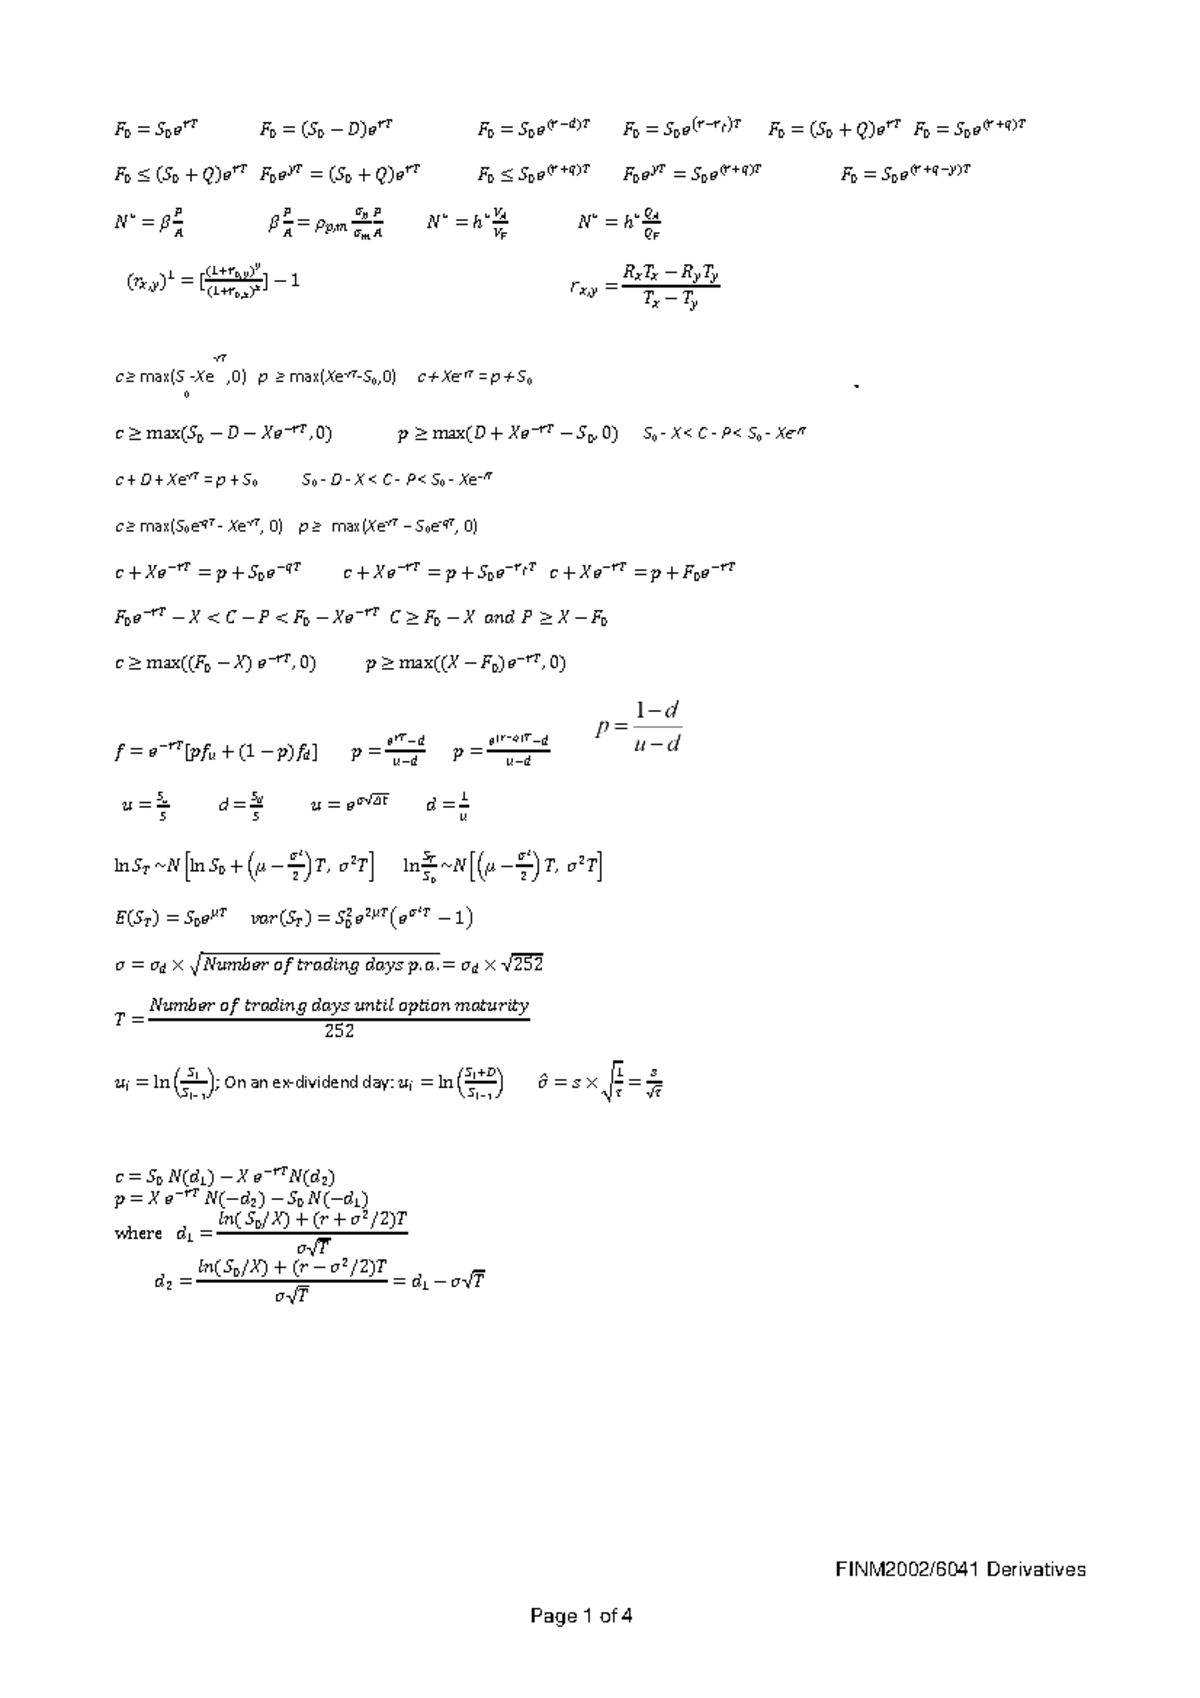 F₀ = S₀e^{rT} F₀ = (S₀ − D)e^{rT} F₀ = S₀e^{(r−d)T} F₀ = S₀e^{(r−r_f)T} F₀ = (S₀ + Q)e^{rT} F₀ = S₀e^{(r+q)T}
F₀ ≤ (S₀ + Q)e^{rT} F₀e^{yT} = (S₀ + Q)e^{rT} F₀ ≤ S₀e^{(r+q)T} F₀e^{yT} = S₀e^{(r+q)T} F₀ = S₀e^{(r+q−y)T}
N* = β P/A β P/A = ρ_{p,m} σ_p/σ_m P/A N* = h* V_A/V_F N* = h* Q_A/Q_F
(r_{x,y})¹ = [(1+r_{0,y})^y/(1+r_{0,x})^x] − 1 r_{x,y} = (R_xT_x − R_yT_y)/(T_x − T_y)
c ≥ max(S₀-Xe^{-rT},0) p ≥ max(Xe^{-rT}-S₀,0) c + Xe^{-rT} = p + S₀
c ≥ max(S₀ − D − Xe^{−rT}, 0) p ≥ max(D + Xe^{−rT} − S₀, 0) S₀ - X < C - P < S₀ - Xe^{-rT}
c + D + Xe^{-rT} = p + S₀ S₀ - D - X < C - P < S₀ - Xe^{-rT}
c ≥ max(S₀e^{-qT} - Xe^{-rT}, 0) p ≥ max(Xe^{-rT} – S₀e^{-qT}, 0)
c + Xe^{−rT} = p + S₀e^{−qT} c + Xe^{−rT} = p + S₀e^{−r_fT} c + Xe^{−rT} = p + F₀e^{−rT}
F₀e^{−rT} − X < C − P < F₀ − Xe^{−rT} C ≥ F₀ − X and P ≥ X − F₀
c ≥ max((F₀ − X) e^{−rT}, 0) p ≥ max((X − F₀)e^{−rT}, 0)
f = e^{−rT}[pf_u + (1 − p)f_d] p = (e^{rT}−d)/(u−d) p = (e^{(r−q)T}−d)/(u−d) p = (1−d)/(u−d)
u = S_u/S d = S_d/S u = e^{σ√Δt} d = 1/u
ln S_T ~N[ln S₀ + (μ − σ²/2)T, σ²T] ln S_T/S₀ ~N[(μ − σ²/2)T, σ²T]
E(S_T) = S₀e^{μT} var(S_T) = S₀²e^{2μT}(e^{σ²T} − 1)
σ = σ_d × √(Number of trading days p.a.) = σ_d × √252
T = Number of trading days until option maturity/252
u_i = ln(S_i/S_{i−1}); On an ex-dividend day: u_i = ln((S_i+D)/S_{i−1}) σ̂ = s × √(1/τ) = s/√τ
c = S₀ N(d₁) − X e^{−rT}N(d₂)
p = X e^{−rT} N(−d₂) − S₀ N(−d₁)
where d₁ = (ln(S₀/X) + (r + σ²/2)T)/(σ√T)
d₂ = (ln(S₀/X) + (r − σ²/2)T)/(σ√T) = d₁ − σ√T
FINM2002/6041 Derivatives
Page 1 of 4